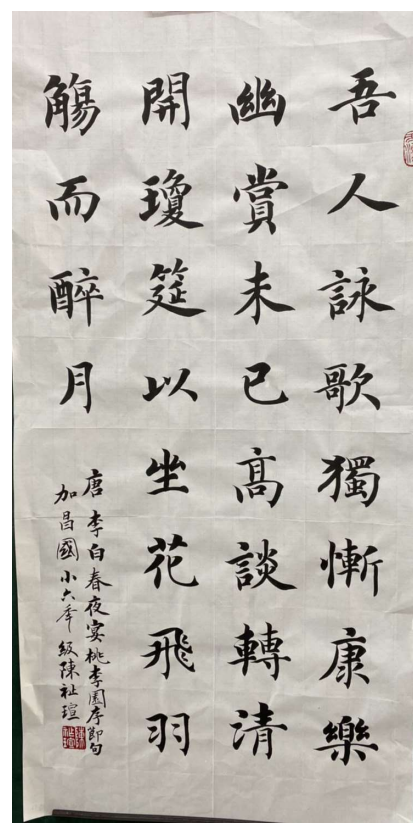 吾人詠歌獨慚康樂
幽賞未已高談轉清
開瓊筵以坐花飛羽
觴而醉月
唐李白春夜宴桃李園序節句
加昌國小六年級陳祉瑄